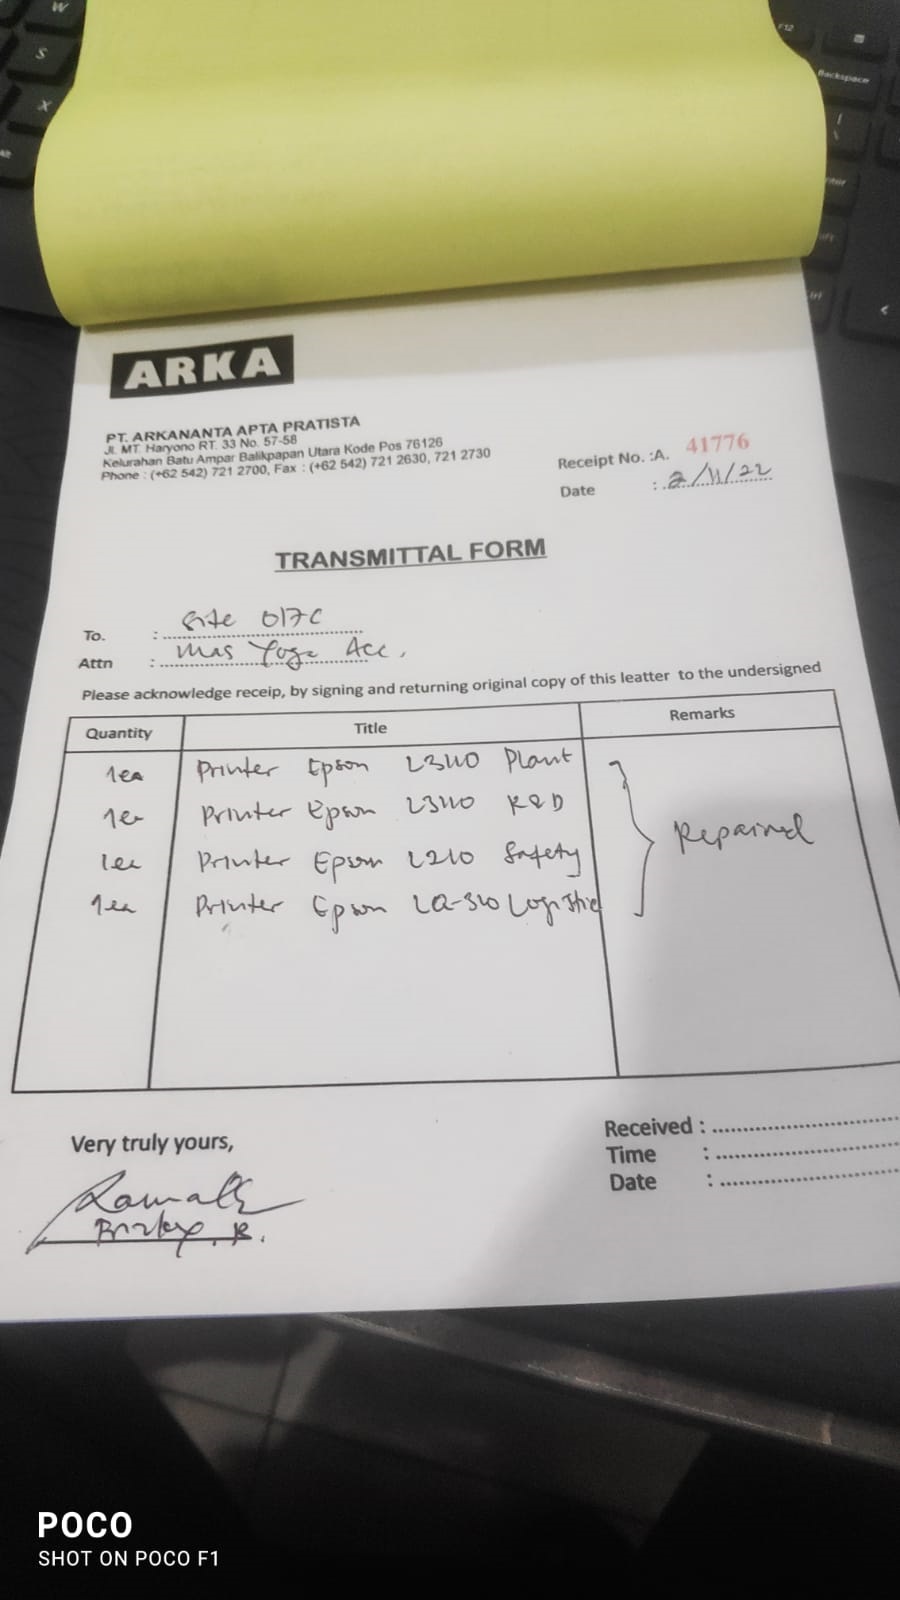 W
S
X
F12
Backspace
ARKA
PT. ARKANANTA APTA PRATISTA
Jl. MT. Haryono RT. 33 No. 57-58
Kelurahan Batu Ampar Balikpapan Utara Kode Pos 76126
Phone : (+62 542) 721 2700, Fax : (+62 542) 721 2630, 721 2730
Receipt No. :A. 41776
Date : 2/11/22
TRANSMITTAL FORM
To. : Site 017C
Attn : Mas Yoga Acc,
Please acknowledge receip, by signing and returning original copy of this leatter to the undersigned
Quantity Title Remarks
1ea Printer Epson L3110 Plant
1ea Printer Epson L3110 R&D
1ea Printer Epson L210 Safety
1ea Printer Epson LQ-310 Logistic
Repaired
Very truly yours,
Received :
Time :
Date :
POCO
SHOT ON POCO F1